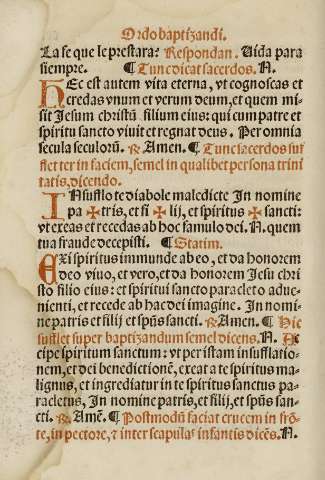 Ordo baptizandi.
La fe que le prestara? Respondan. Uida para
siempre. ¶ Tunc dicat sacerdos. N.
HEc est autem vita eterna, vt cognoscas et
credas vnum et verum deum, et quem mi-
sit Jesum christū filium eius: qui cum patre et
spiritu sancto viuit et regnat deus. Per omnia
secula seculorū. ℟ Amen. ¶ Tunc sacerdos suf
flet ter in faciem, semel in qualibet persona trini
tatis, dicendo.
INsufflo te diabole maledicte In nomine
pa ✠ tris, et fi ✠ lij, et spiritus ✠ sancti:
vt exeas et recedas ab hoc famulo dei. N. quem
tua fraude decepisti. ¶ Statim.
EXi spiritus immunde ab eo, et da honorem
deo viuo, et vero, et da honorem Jesu chri
sto filio eius: et spiritui sancto paracleto adue-
nienti, et recede ab hac dei imagine. In nomi-
ne patris et filij et spūs sancti. ℟ Amen. ¶ Hic
sufflet super baptizandum semel dicens. N. Ac
cipe spiritum sanctum: vt per istam insufflatio-
nem, et dei benedictionē, exeat a te spiritus ma-
lignus, et ingrediatur in te spiritus sanctus pa-
racletus, In nomine patris, et filij, et spūs san-
cti. ℟ Amē. ¶ Postmodū faciat crucem in frō-
te, in pectore, ⁊ inter scapulas infantis dicēs. N.